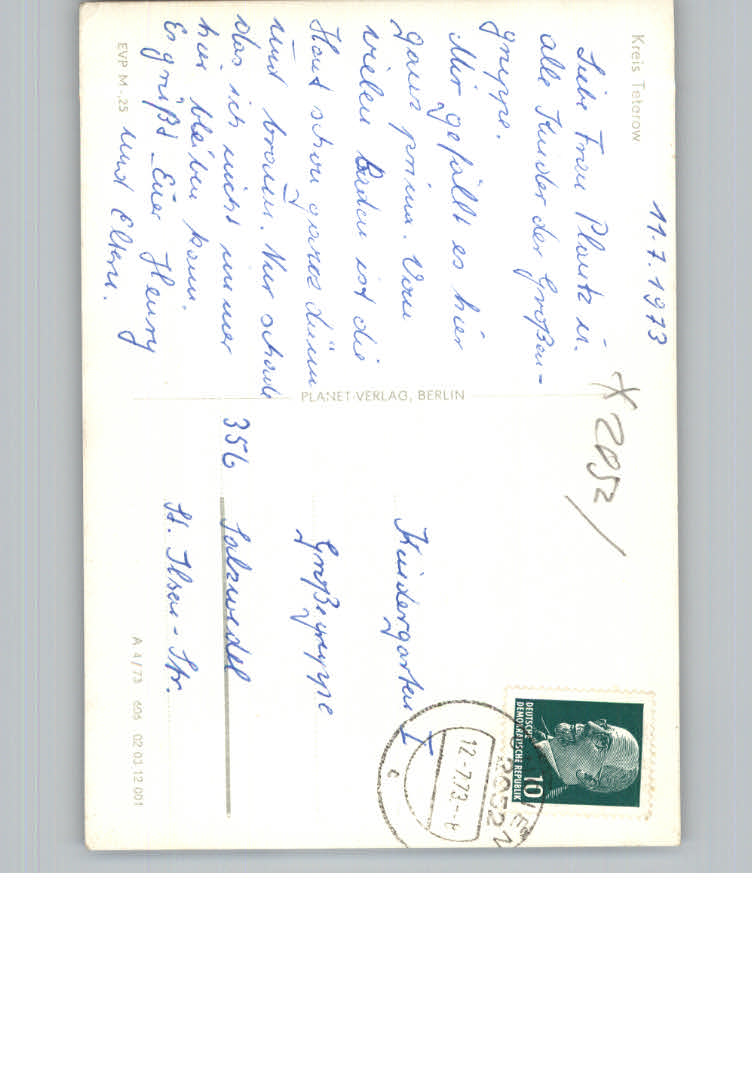 Kreis Teterow
11.7.1973
Liebe Frau Plautz u.
alle Kinder der Großen-
gruppe.
Mir gefällt es hier
ganz prima. Vom
vielen Baden ist die
Haut schon ganz dünn
und braun. Nur schade
das ich nicht immer
hier bleiben kann.
Es grüßt Euer Henry
und Eltern.
EVP M -,25
PLANET-VERLAG, BERLIN
* 2052/
Kindergarten I
Großegruppe
356 Salzwedel
St. Ilsen-Str.
A 4/73 606 02 03 12 001
DEUTSCHE
DEMOKRATISCHE REPUBLIK
10
2052
12.-7.73.-8
c